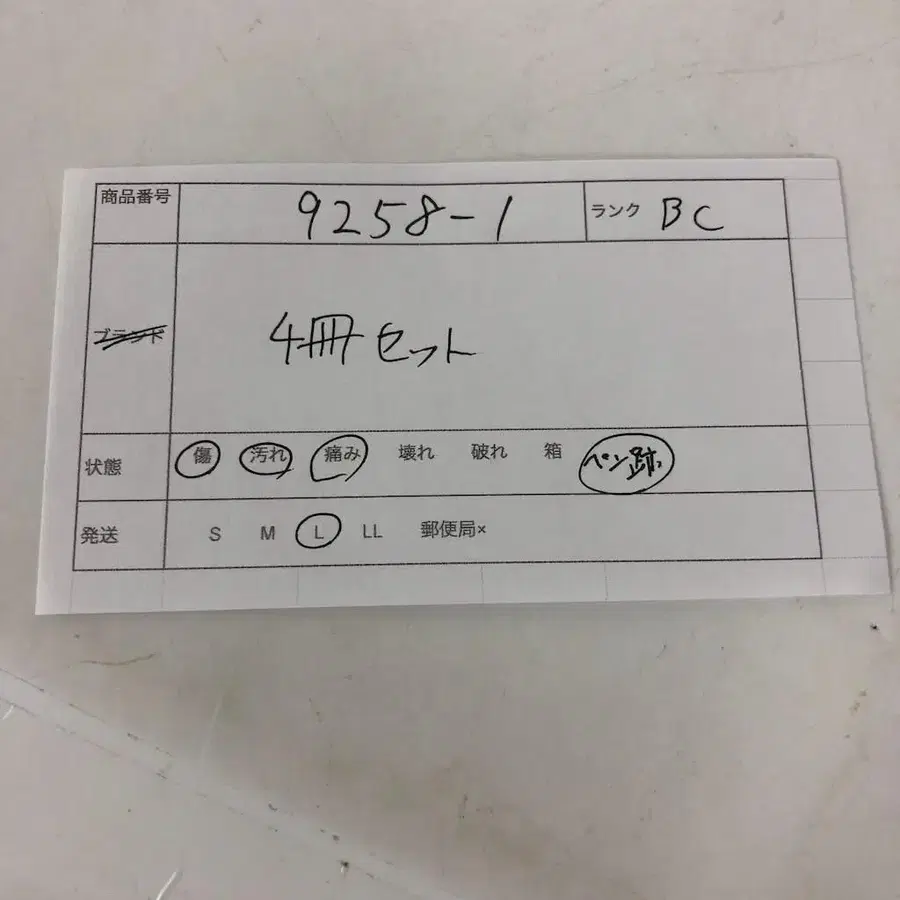 商品番号 9258-1 ランク BC
ブランド 4冊セット
状態 傷 汚れ 痛み 壊れ 破れ 箱 ペン跡
発送 S M L LL 郵便局×